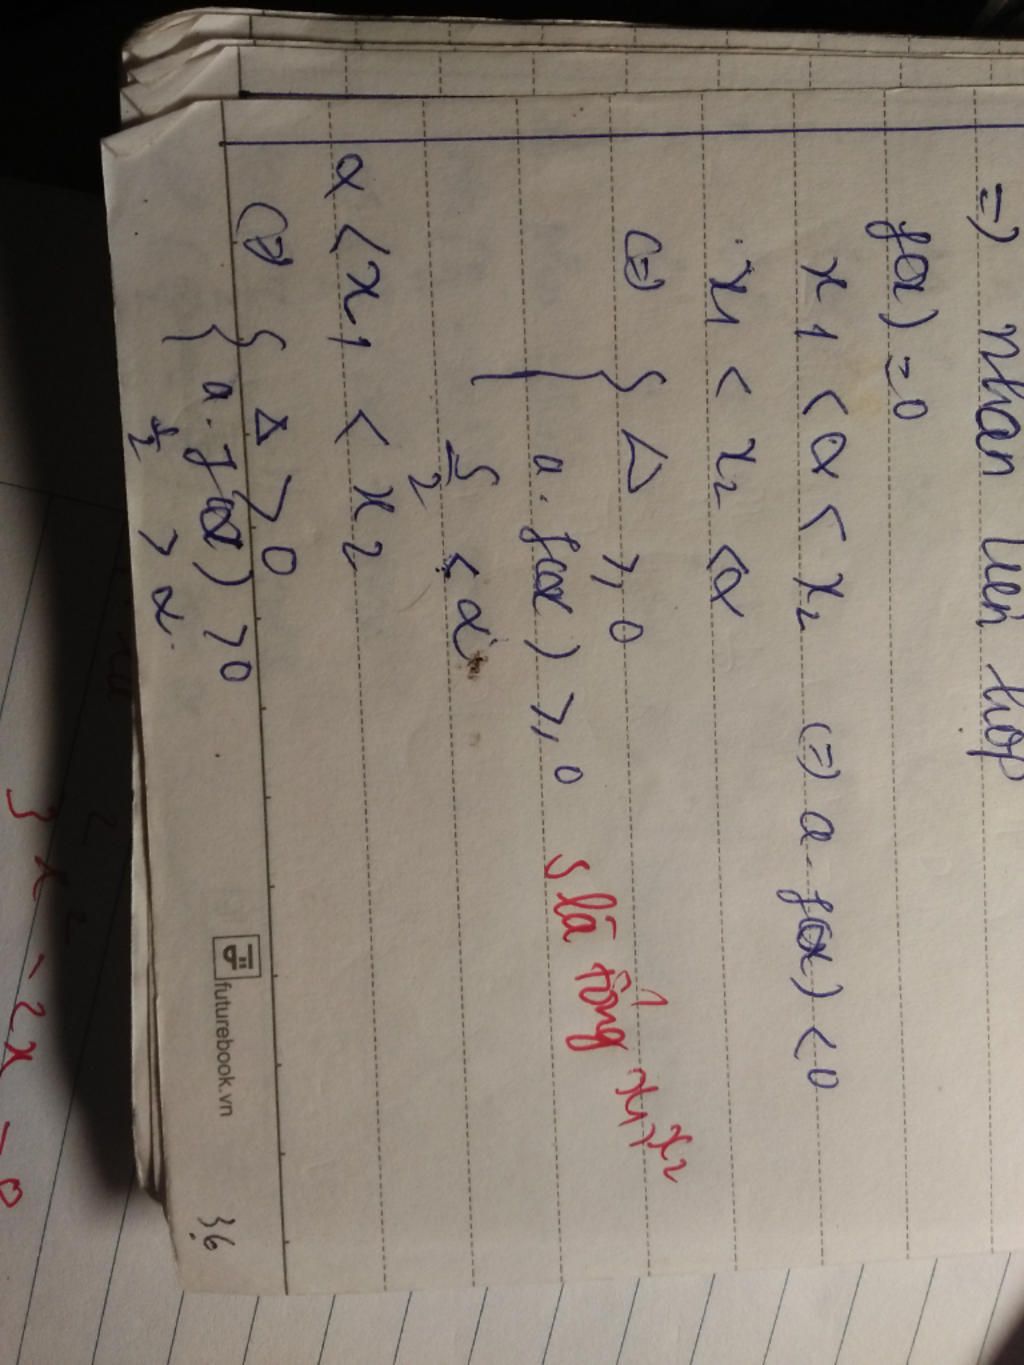 =) nhân liên hợp
f(x) = 0
x1 < α < x2 (=) a. f(α) < 0
x1 < x2 < α
(=) { Δ >, 0
a. f(α) >, 0 S là tổng x1, x2
S/2 < α
α < x1 < x2
(=) { Δ > 0
a. f(α) > 0
S/2 > α.
futurebook.vn
36
3x² - 2x = 0